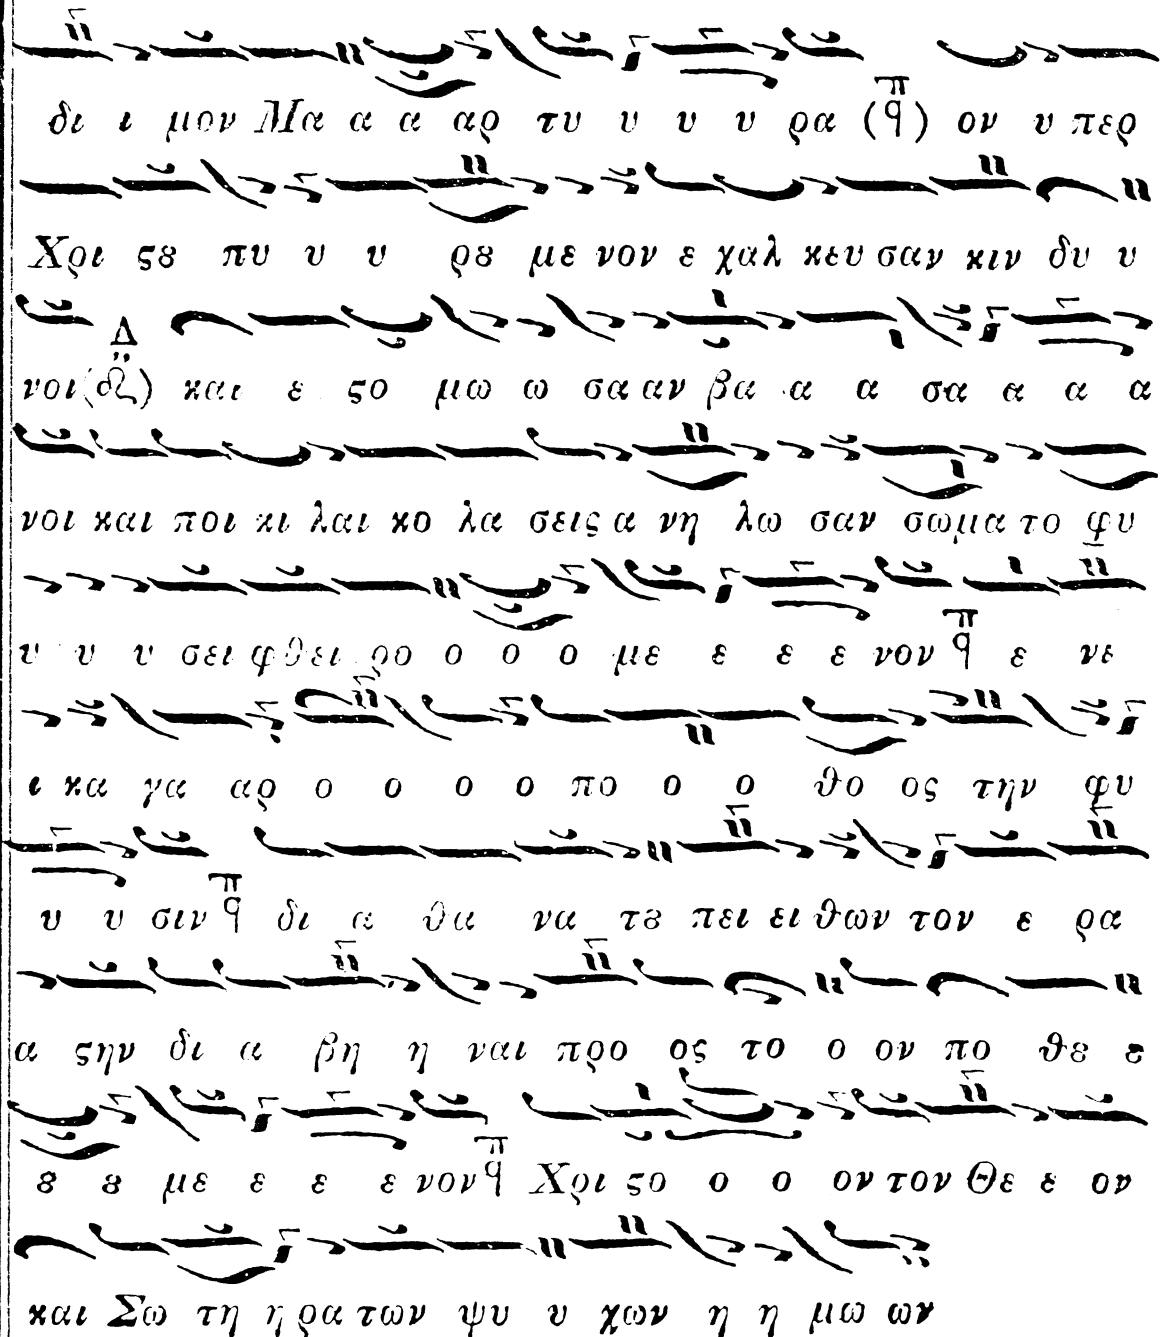 δι ι μον Μα α α αρ τυ υ υ υ ρα (π̅ q) ον υ περ
Χρι ϛȣ πυ υ υ ρȣ με νον ε χαλ κευ σαν κιν δυ υ
νοι (Δ) και ε ϛο μω ω σα αν βα α α σα α α α
νοι και ποι κι λαι κο λα σεις α νη λω σαν σωμα το φυ
υ υ υ σει φθει ρο ο ο ο με ε ε ε νον π q ε νε
ι κα γα αρ ο ο ο ο πο ο ο θο ος την φυ
υ υ σιν π q δι α θα να τȣ πει ει θων τον ε ρα
α ϛην δι α βη η ναι προ ος το ο ον πο θȣ ȣ
ȣ ȣ με ε ε ε νον π q Χρι ϛο ο ο ον τον Θε ε ον
και Σω τη η ρα των ψυ υ χων η η μω ων